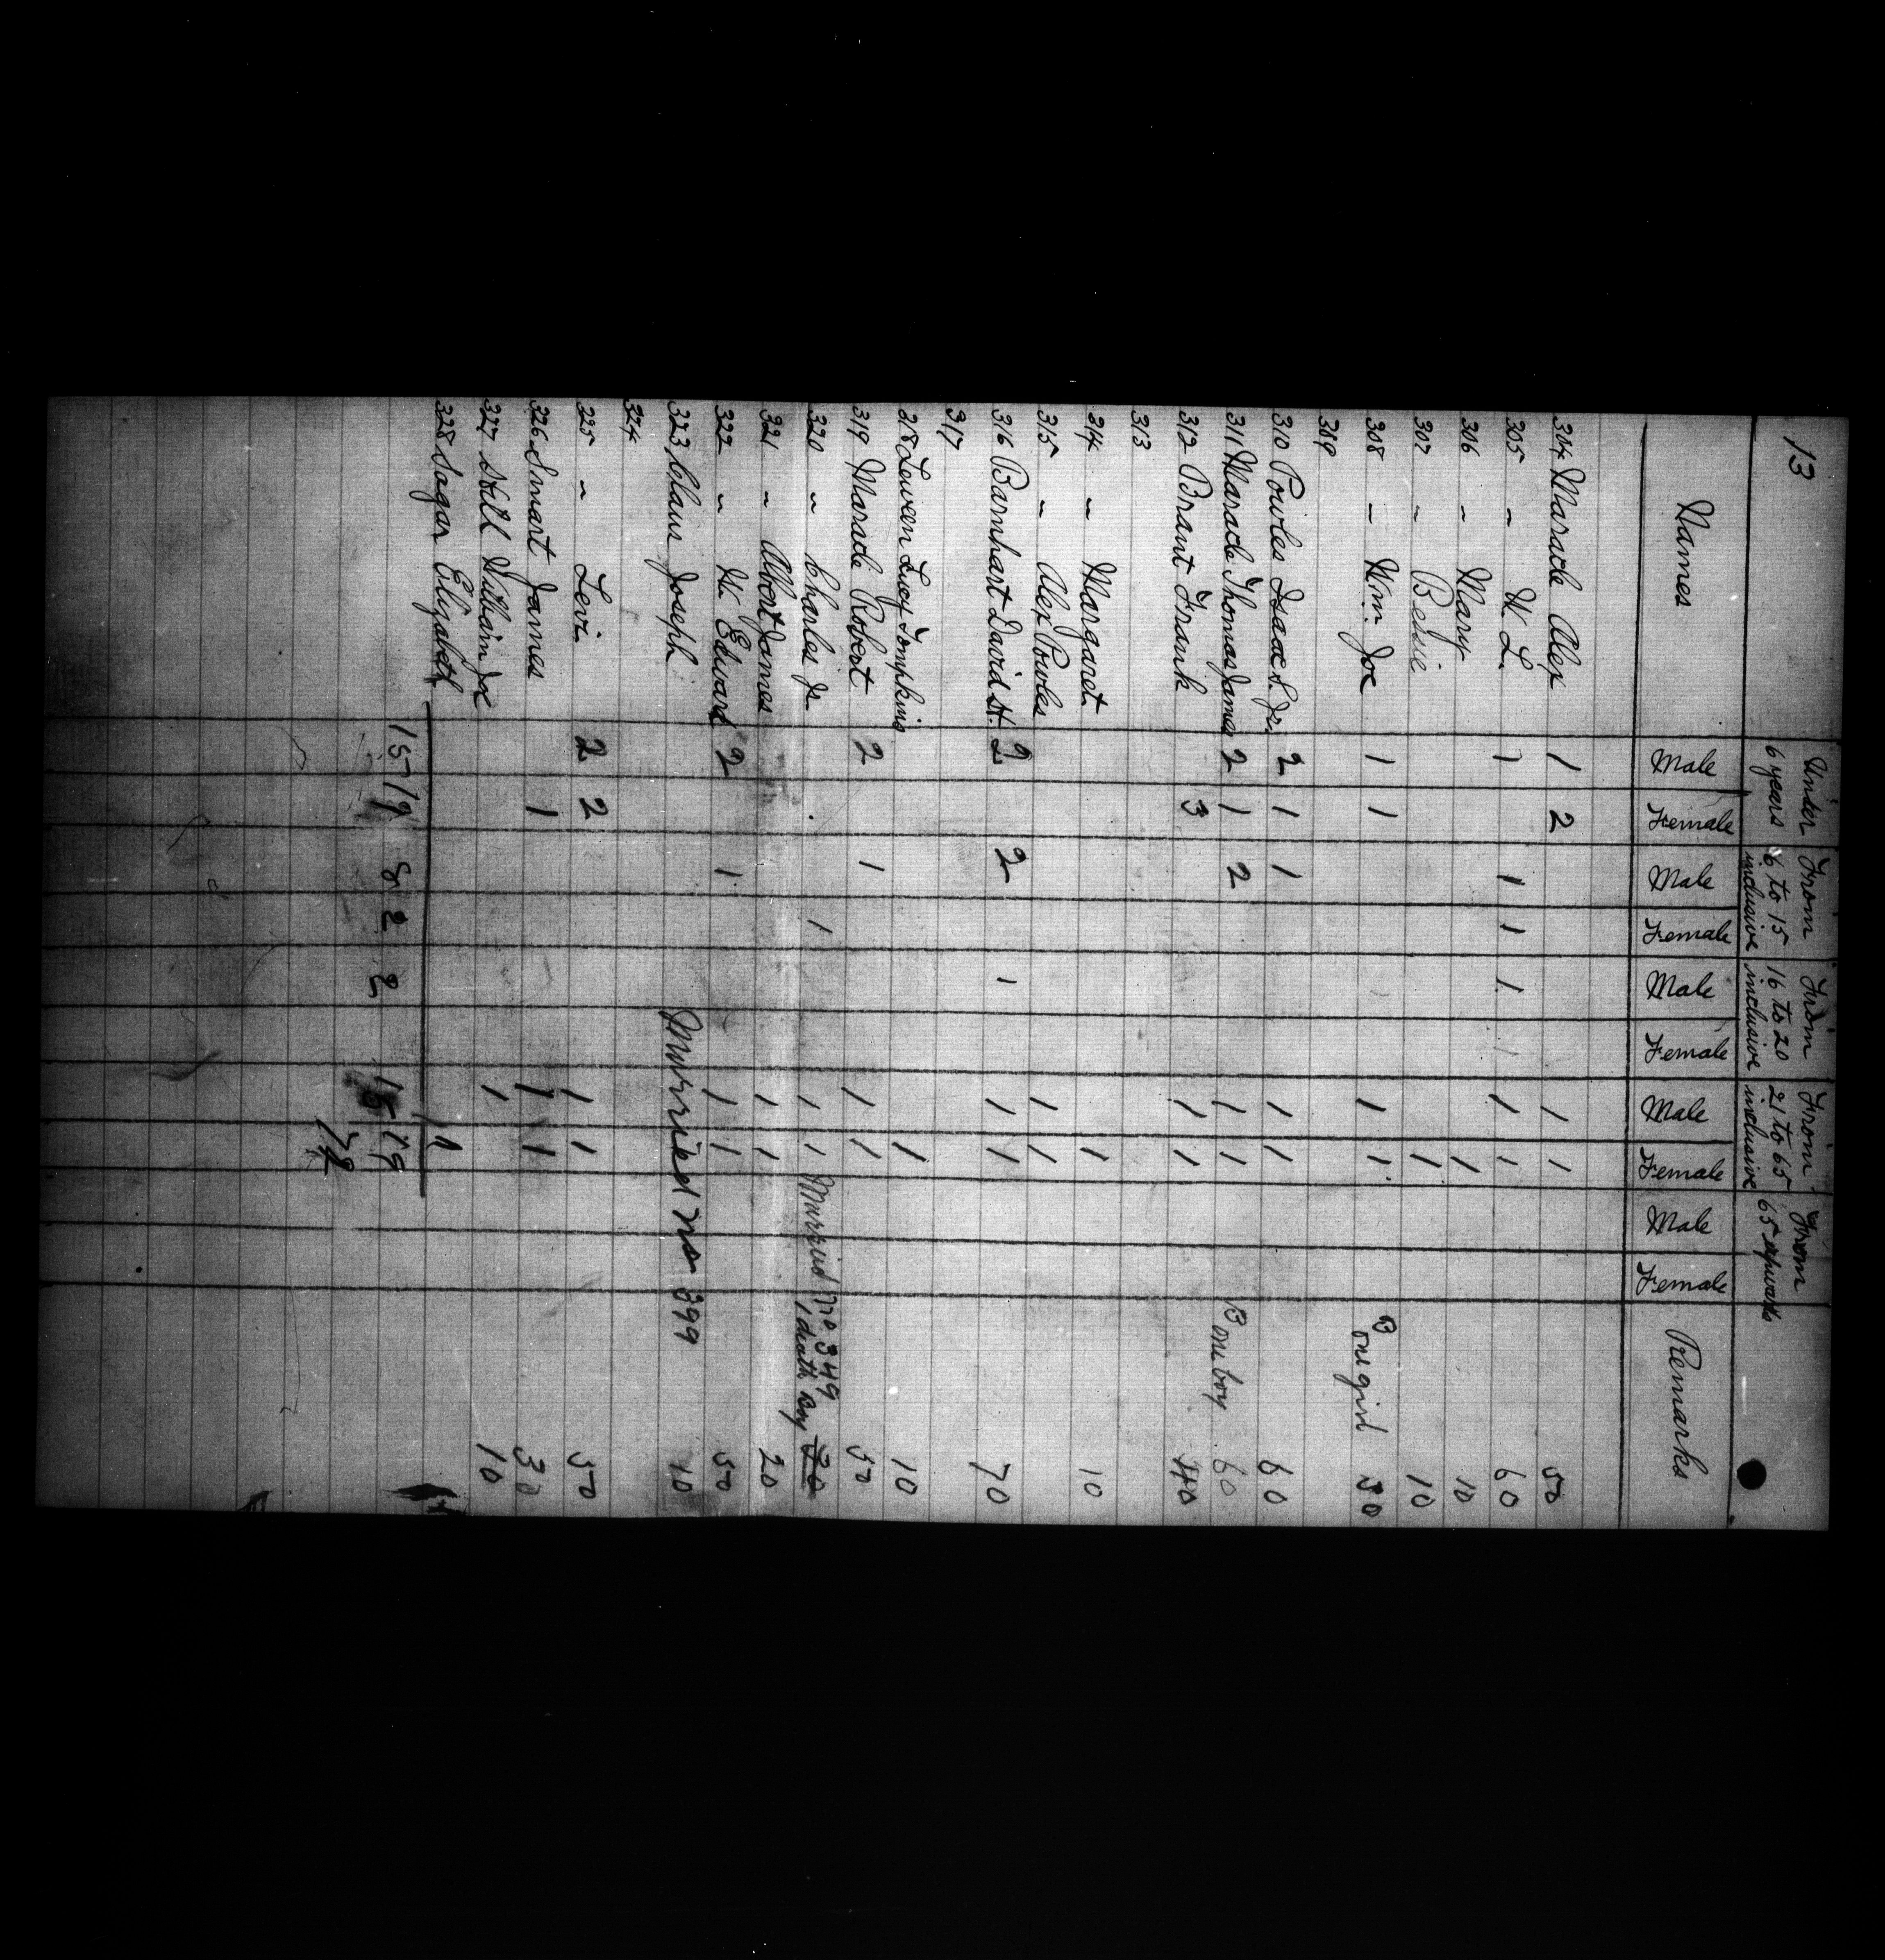 13 Under 6 years From 6 to 15 inclusive From 16 to 20 inclusive From 21 to 65 inclusive From 65 upwards
Names Male Female Male Female Male Female Male Female Male Female Remarks
304 Maracle Alex 1 2 1 1 50
305 " W. L. 1 1 1 1 1 1 60
306 " Mary 1 10
307 " Bessie 1 10
308 " Wm. Joe 1 1 1 1 B one girl 30
309
310 Powles Isaac S. Jr. 2 1 1 1 1 60
311 Maracle Thomas James 2 1 2 1 1 B one boy 60
312 Brant Frank 3 1 1 40
313
314 " Margaret 1 10
315 " Alex Powles 1 1
316 Barnhart David H. 2 2 1 1 1 70
317
318 Loween Lucy Tompkins 1 10
319 Maracle Robert 2 1 1 1 50
320 " Charles Jr. 1 1 1 Married no 349 1 death Boy
321 " Albert James 1 1 20
322 " W. Edward 2 1 1 1 50
323 Claus Joseph Married no 399 10
324
325 " Levi 2 2 1 1 50
326 Smart James 1 1 1 30
327 Hill William Joe 1 10
328 Sagar Elizabeth
15 19 8 2 2 15 19